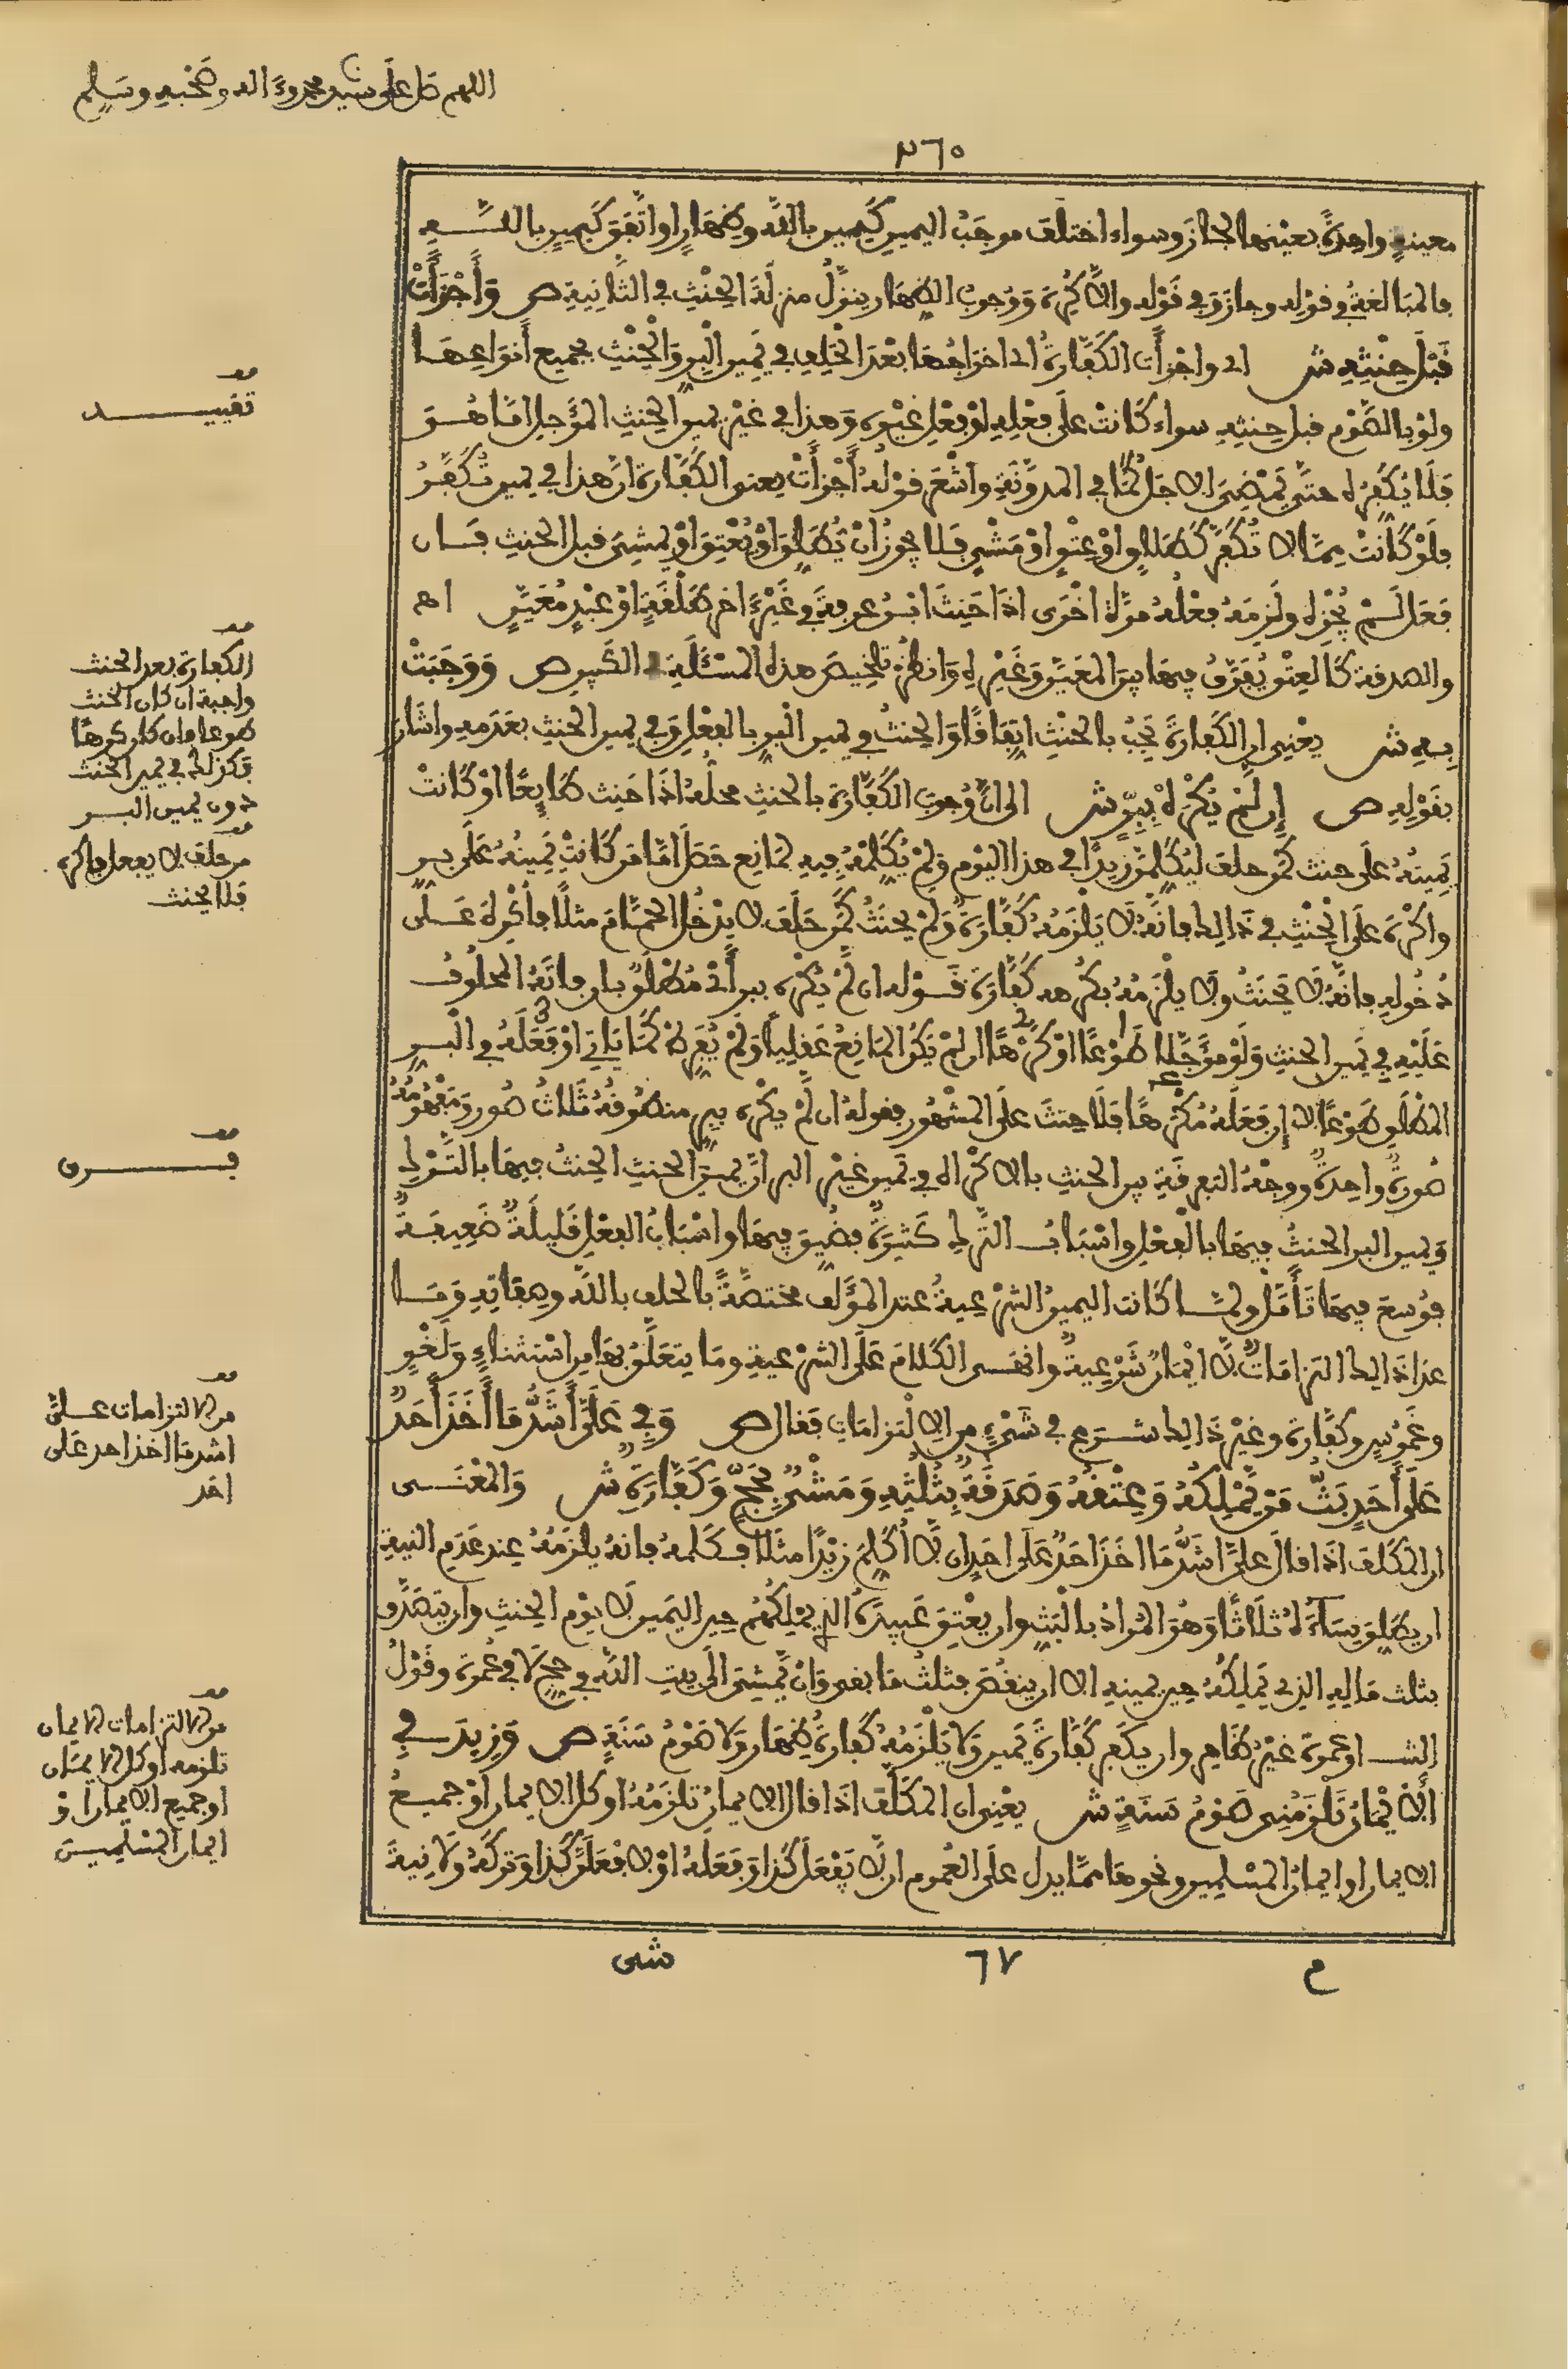 اللهم صل على سيد محمد وءاله وصحبه وسلم
٣٦٠
معينة واحدة بعينها لجاز وسواء اختلف موجب اليمين كيمين بالله وظهار او اتفق كيمين بالله
فالمبالغة في قوله وجازى في قوله والا كره ووجوب الظهار ينزل منزلة الحنث في الثانية ص وأجزأت
قبل حنثه ش اى واجزأت الكفارة اى اخراجها بعد الحلف في يمين البر والحنث بجميع أنواعها
ولو بالصوم قبل حنثه سواء كانت على فعله او فعل غيره وهذا في غير يمين الحنث المؤجل اما هو
فلا يكفر له حتى يمضي الاجل كما في المدونة واشعر قوله أجزأت يعني الكفارة ان هذا في يمين تكفر
فلو كانت مما لا تكفر كطلاق او عتق او مشي فلا يجوز ان يطلق او يعتق او يمشي قبل الحنث فان
فعل لم يجزه ولزمه فعله مرة اخرى اذا حنث ابن عرفة في غير ءاخر طلقة او عبد معين اه
والصدقة كالعتق يفرق فيها بين المعين وغيره وانظر تلخيص هذه المسئلة في الكبير ص ووجبت
به ش يعني ان الكفارة تجب بالحنث اتفاقا والحنث في يمين البر بالفعل وفي يمين الحنث بعدمه واشار
بقوله ص إن لم يكره ببر ش الى ان وجوب الكفارة بالحنث محله اذا حنث طايعا او كانت
يمينه على حنث كمن حلف ليكلمن زيدا في هذا اليوم ولم يكلمه فيه لمانع حصل اما من كانت يمينه على بر
واكره على الحنث في ذالك فانه لا يلزمه كفارة ولم يحنث كمن حلف لا يدخل الحمام مثلا فأكره على
دخوله فانه لا يحنث ولا يلزمه بكرهه كفارة قوله ان لم يكره ببر أي مطلق بان فاته المحلوف
عليه في يمين الحنث ولو مؤجلا طوعا او كرها ان لم يكن المانع عقليا ولم يفرط كما ياتي او فعله في البر
المطلق طوعا لا إن فعله مكرها فلا حنث على المشهور فقوله ان لم يكره ببر منطوقه ثلاث صور ومفهومه
صورة واحدة ووجه التفرقة بين الحنث بالاكراه في يمين غير البر ان يمين الحنث الحنث فيها بالترك
ويمين البر الحنث فيها بالفعل واسباب الترك كثيرة فضيق فيها واسباب الفعل قليلة ضعيفة
فوسع فيها تأمل ولما كانت اليمين الشرعية عند المؤلف مختصة بالحلف بالله وصفاته وما
عدا ذالك التزامات لا ايمان شرعية وانقضى الكلام على الشرعية وما يتعلق بها من استثناء ولغو
وغموس وكفارة وغير ذالك شرع في شيء من الالتزامات فقال ص وفي علي أشد ما أخذ أحد
على أحد بت من يملكه وعتقه وصدقة بثلثه ومشي بحج وكفارة ش والمعنى
ان المكلف اذا قال علي اشد ما اخذ احد على احد ان لا اكلم زيدا مثلا فكلمه فانه يلزمه عند عدم النية
ان يطلق نساءه ثلاثا وهو المراد بالبت وان يعتق عبيده الذي يملكهم حين اليمين لا يوم الحنث وان يتصدق
بثلث ماله الذي يملكه حين يمينه الا ان ينقص فثلث ما بقي وان يمشي الى بيت الله في حج لا في عمرة وقول
الشـ او عمرة غير ظاهر وان يكفر كفارة يمين ولا يلزمه كفارة ظهار ولا صوم سنة ص وزيد في
الأيمان تلزمني صوم سنة ش يعني ان المكلف اذا قال الايمان تلزمه او كل الايمان او جميع
الايمان او ايمان المسلمين ونحوها مما يدل على العموم ان لا يفعل كذا وفعله او لافعلن كذا وتركه ولا نية
م
٦٧
شي
تقييد
الكفارة بعد الحنث
واجبة ان كان الحنث
طوعا وان كان كرها
فكذلك في يمين الحنث
دون يمين البر
من حلف لا يفعل فاكره
فلا يحنث
فرق
من الالتزامات علي
اشد ما اخذ احد على
احد
من الالتزامات الايمان
تلزمه او كل الايمان
او جميع الايمان او
ايمان المسلمين